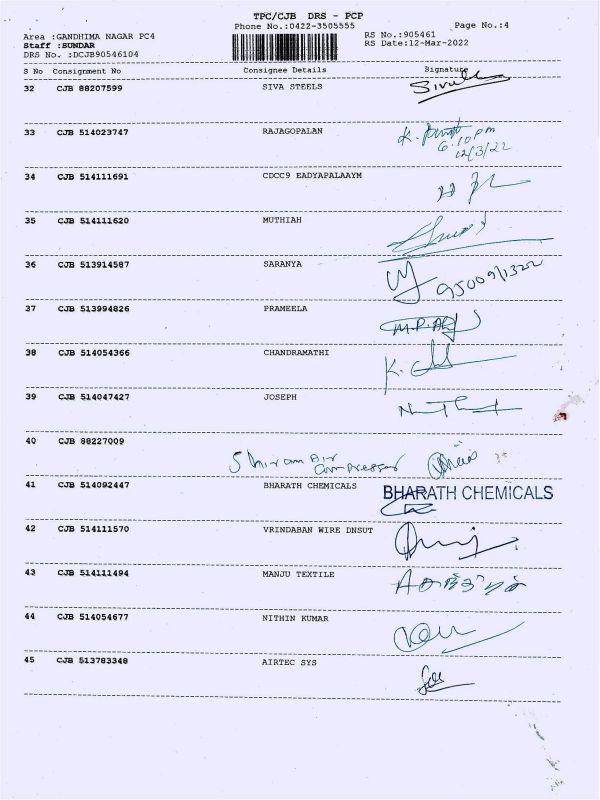 TPC/CJB DRS - PCP
Phone No.:0422-3505555 Page No.:4
Area :GANDHIMA NAGAR PC4 RS No.:905461
Staff :SUNDAR RS Date:12-Mar-2022
DRS No. :DCJB90546104
S No Consignment No Consignee Details Signature
32 CJB 88207599 SIVA STEELS
33 CJB 514023747 RAJAGOPALAN K.
6.10pm
12/3/22
34 CJB 514111691 CDCC9 EADYAPALAAYM
35 CJB 514111620 MUTHIAH
36 CJB 513914587 SARANYA
37 CJB 513994826 PRAMEELA
38 CJB 514054366 CHANDRAMATHI K.
39 CJB 514047427 JOSEPH
40 CJB 88227009
Shiram Air
Compressor
41 CJB 514092447 BHARATH CHEMICALS BHARATH CHEMICALS
42 CJB 514111570 VRINDABAN WIRE DNSUT
43 CJB 514111494 MANJU TEXTILE
44 CJB 514054677 NITHIN KUMAR
45 CJB 513783348 AIRTEC SYS